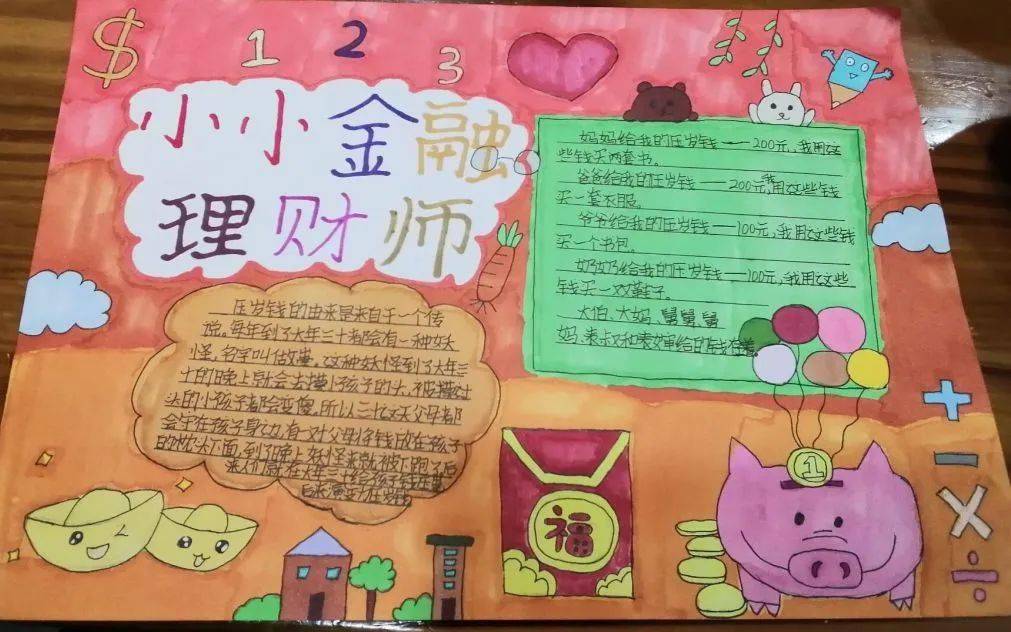 $ 1 2 3
小小金融
理财师
妈妈给我的压岁钱——200元，我用这
些钱买两套书。
爸爸给我的压岁钱——200元，我用这些钱
买一套衣服。
爷爷给我的压岁钱——100元，我用这些钱
买一个书包。
奶奶给我的压岁钱——100元，我用这些
钱买一双鞋子。
大伯、大妈、舅舅、舅
妈、表叔和表婶给的钱
压岁钱的由来是来自于一个传
说，每年到了大年三十都会有一种妖
怪，名字叫做祟，这种妖怪到了大年三
十的晚上就会去摸小孩子的头，被摸过
头的小孩子都会变傻，所以三十这天父母都
会守在孩子身边，有一对父母将钱放在孩子
的枕头下面，到了晚上妖怪来就被下跑了后
来人们就在大年三十给孩子
福
1
+
−
×
÷